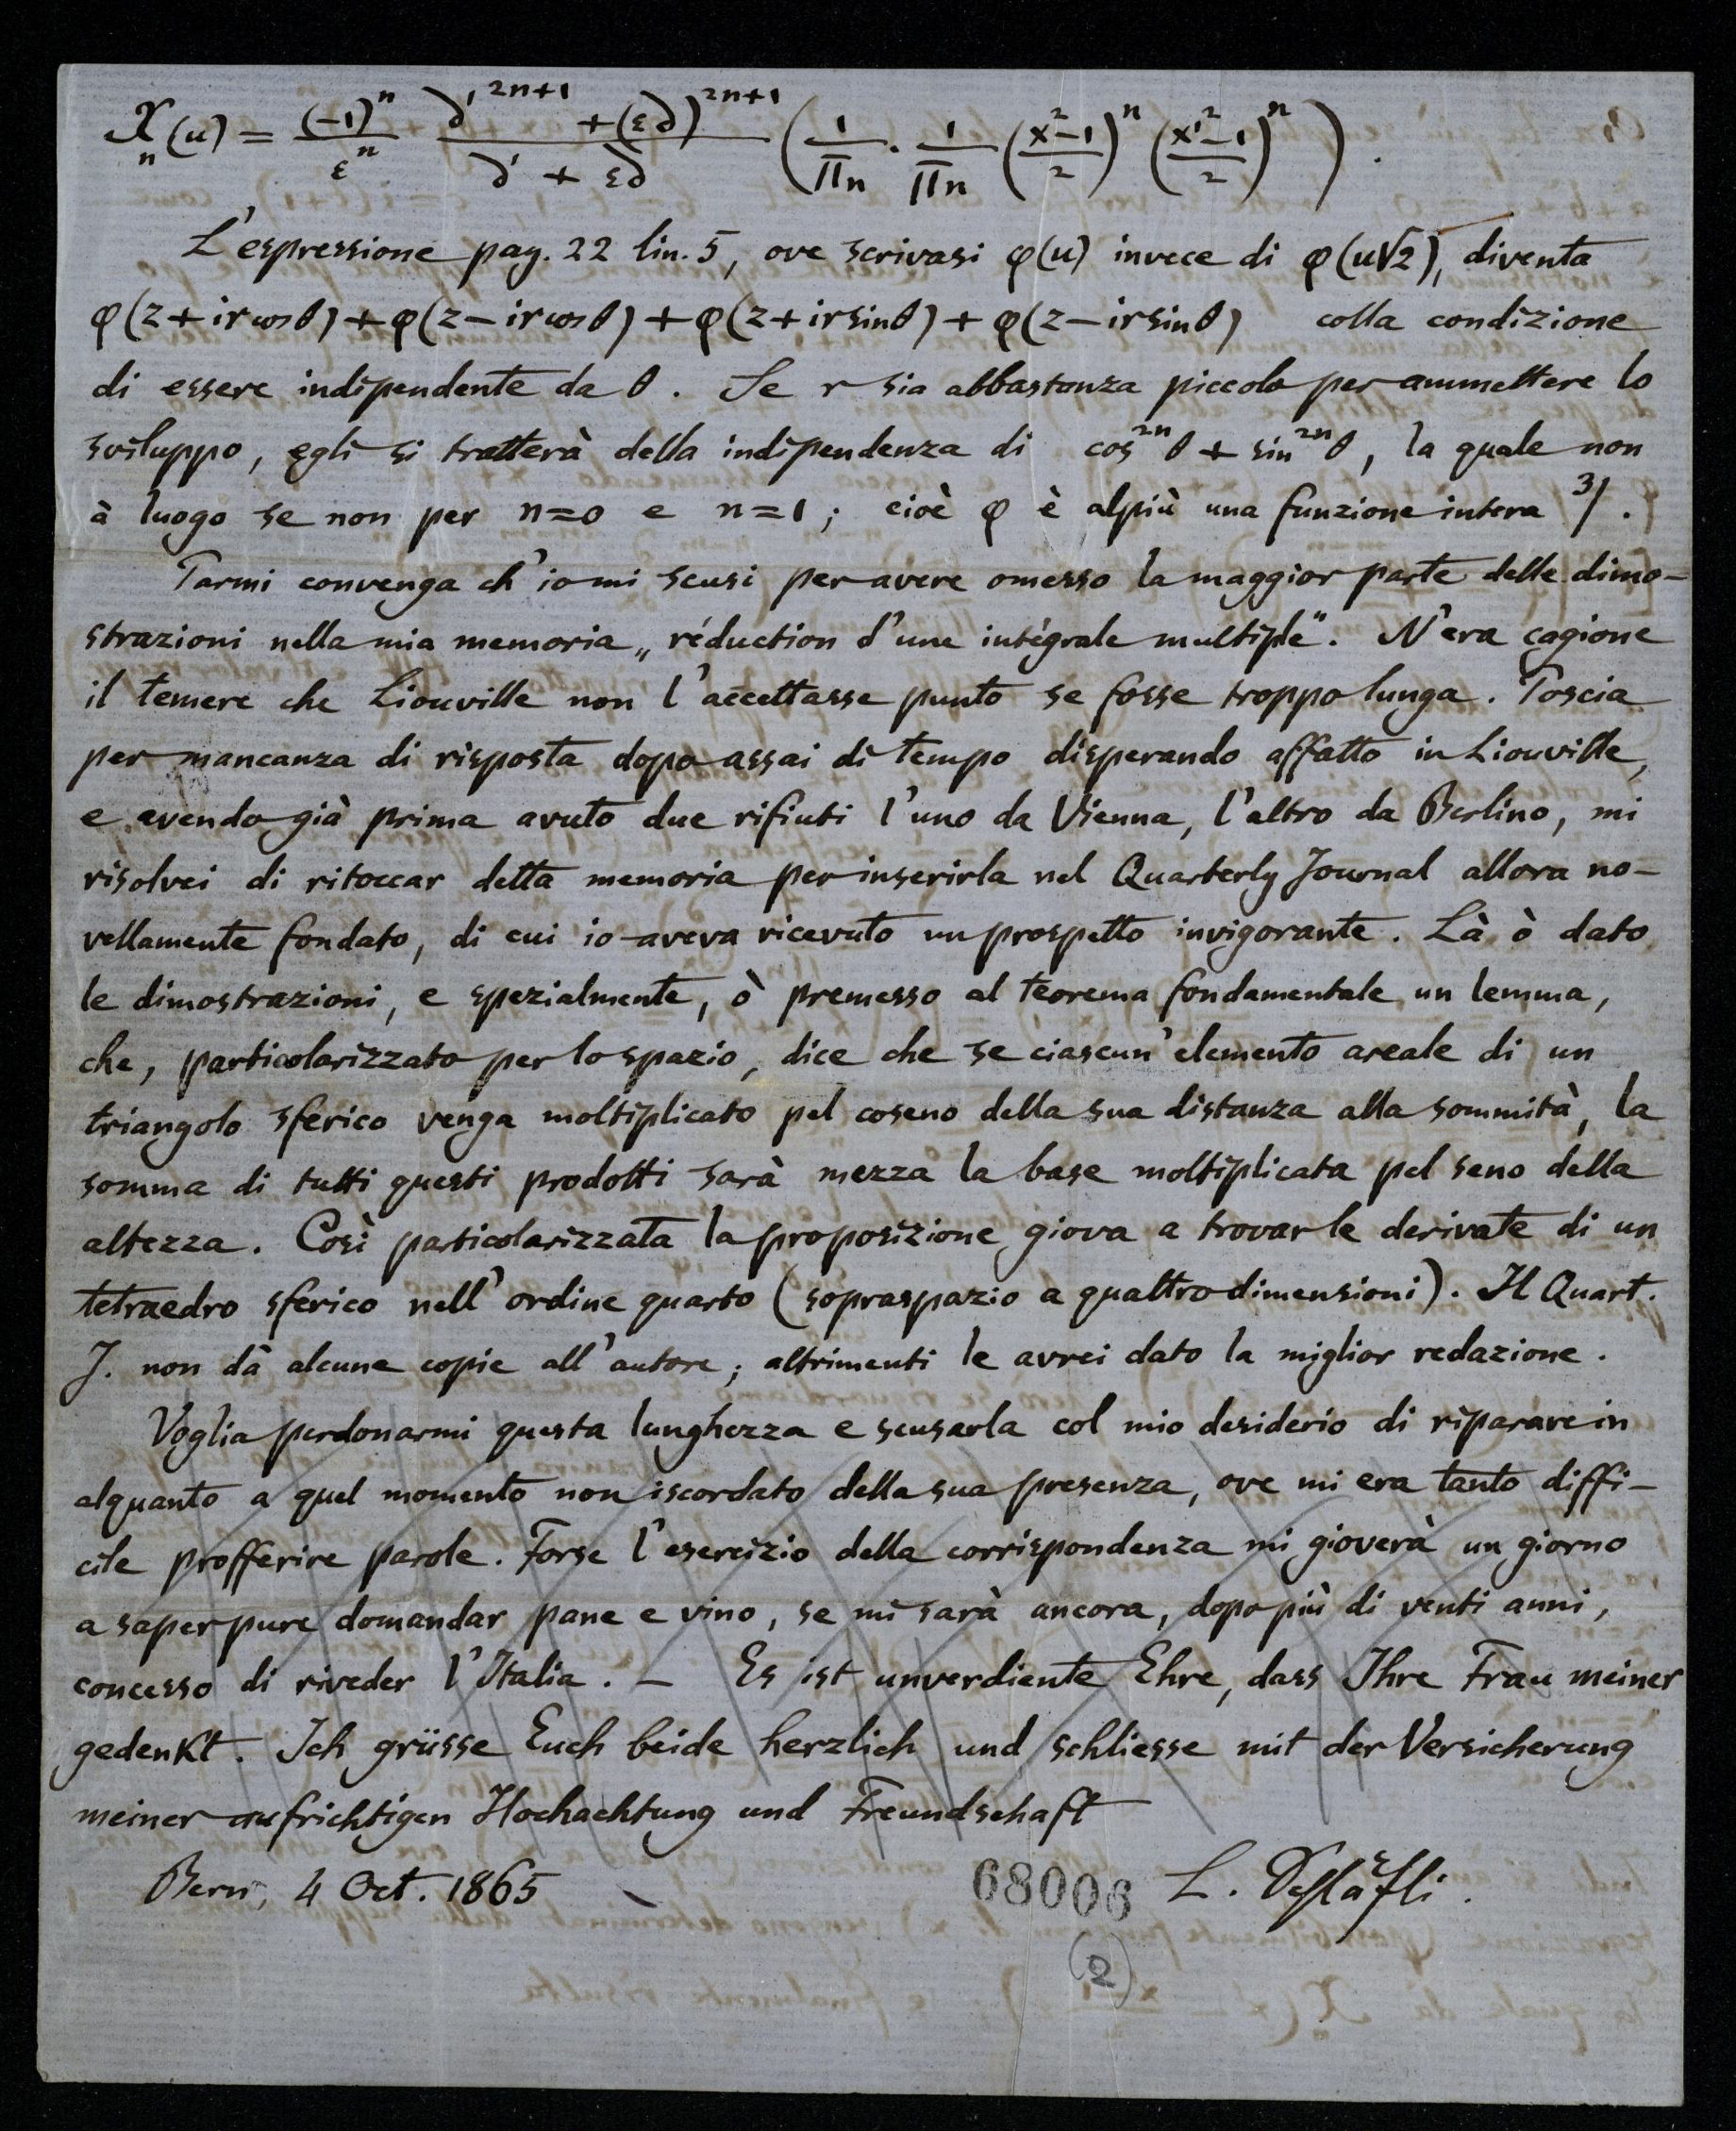 X_n(u) = (-1)^n/ε^n · (∂'^{2n+1} + (ε∂)^{2n+1})/(∂' + ε∂) (1/Πn · 1/Πn ((x²-1)/2)^n ((x'²-1)/2)^n).
L'espressione pag. 22 lin. 5, ove scrivasi φ(u) invece di φ(u√2), diventa
φ(z+ir cosθ)+φ(z-ir cosθ)+φ(z+ir sinθ)+φ(z-ir sinθ) colla condizione
di essere indipendente da θ. Se r sia abbastanza piccolo per ammettere lo
sviluppo, egli si tratterà della indipendenza di cos^{2n}θ + sin^{2n}θ, la quale non
à luogo se non per n=0 e n=1; cioè φ è alpiù una funzione intera 3).
Parmi convenga ch'io mi scusi per avere omesso la maggior parte delle dimo-
strazioni nella mia memoria „réduction d'une intégrale multiple". N'era cagione
il temere che Liouville non l'accettasse punto se fosse troppo lunga. Poscia
per mancanza di risposta dopo assai di tempo disperando affatto in Liouville,
e avendo già prima avuto due rifiuti l'uno da Vienna, l'altro da Berlino, mi
risolvei di ritoccar detta memoria per inserirla nel Quarterly Journal allora no-
vellamente fondato, di cui io aveva ricevuto un prospetto invigorante. Là ò dato
le dimostrazioni, e spezialmente, ò premesso al teorema fondamentale un lemma,
che, particolarizzato per lo spazio, dice che se ciascun' elemento areale di un
triangolo sferico venga moltiplicato pel coseno della sua distanza alla sommità, la
somma di tutti questi prodotti sarà mezza la base moltiplicata pel seno della
altezza. Così particolarizzata la proposizione giova a trovar le derivate di un
tetraedro sferico nell'ordine quarto (sopraspazio a quattro dimensioni). Il Quart.
J. non dà alcune copie all'autore; altrimenti le avrei dato la miglior redazione.
Voglia perdonarmi questa lunghezza e scusarla col mio desiderio di riparare in
alquanto a quel momento non iscordato della sua presenza, ove mi era tanto diffi-
cile profferire parole. Forse l'esercizio della corrispondenza mi gioverà un giorno
a saper pure domandar pane e vino, se mi sarà ancora, dopo più di venti anni,
concesso di riveder l'Italia. – Es ist unverdiente Ehre, dass Ihre Frau meiner
gedenkt. Ich grüsse Euch beide herzlich und schliesse mit der Versicherung
meiner aufrichtigen Hochachtung und Freundschaft
Bern, 4 Oct. 1865 68006 L. Schläfli.
(2)